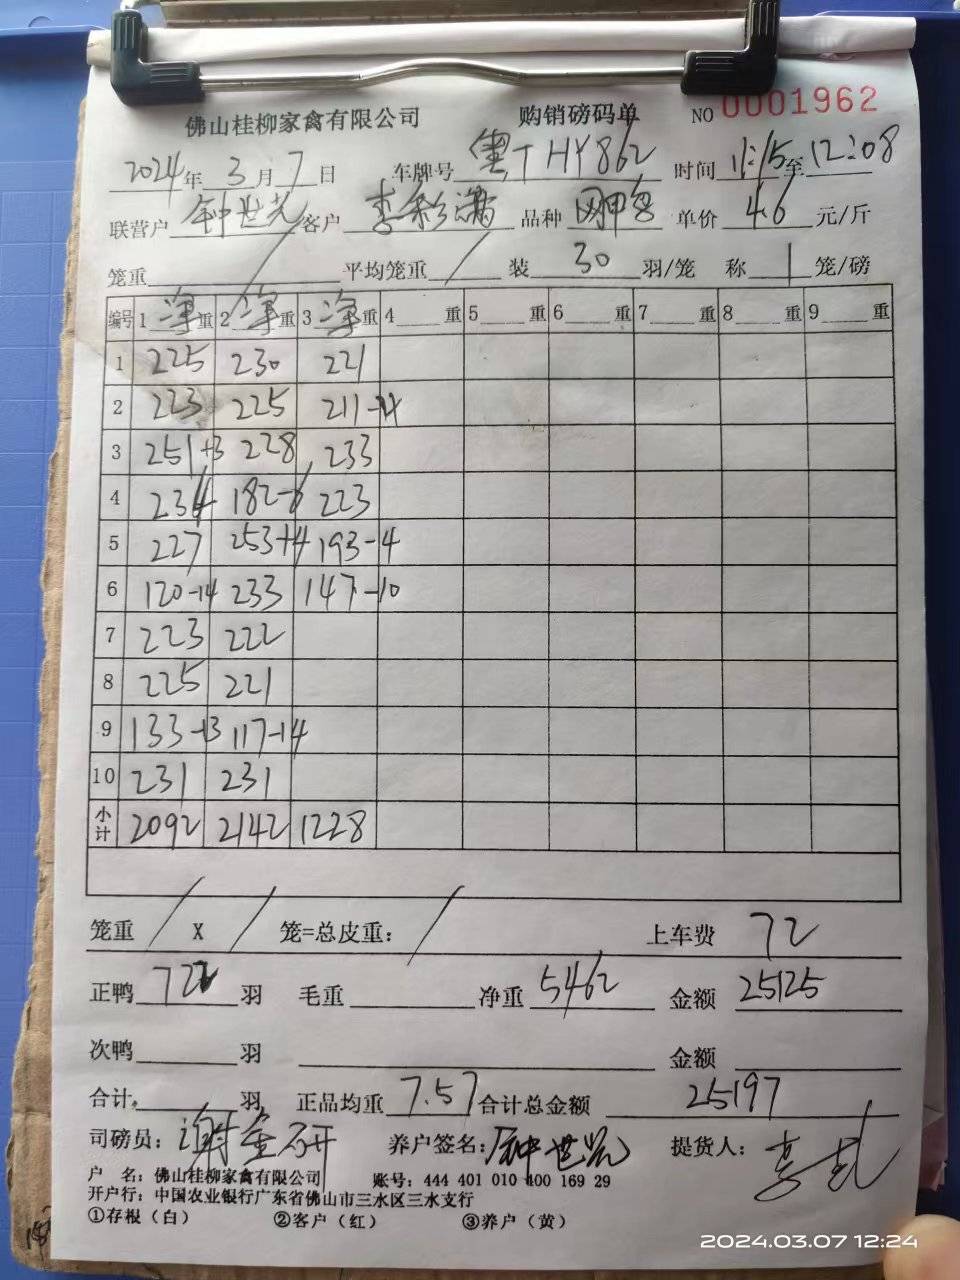 佛山桂柳家禽有限公司 购销磅码单 NO 0001962
2024年3月7日 车牌号 粤THY862 时间 11:15至12:08
联营户 钟世 客户 李彩 品种 单价 4.6 元/斤
笼重 / 平均笼重 / 装 30 羽/笼 称 1 笼/磅
编号 1 净 重 2 净 重 3 净 重 4 重 5 重 6 重 7 重 8 重 9 重
1 225 230 221
2 223 225 211-4
3 251+3 228 233
4 234 182-6 223
5 227 253+4 193-4
6 120-14 233 147-10
7 223 222
8 225 221
9 133-13 117-14
10 231 231
小计 2092 2142 1228
笼重 / X / 笼=总皮重: / 上车费 72
正鸭 722 羽 毛重 净重 5462 金额 25125
次鸭 羽 金额
合计 羽 正品均重 7.57 合计总金额 25197
司磅员: 谢金研 养户签名: 钟世 提货人: 李
户 名: 佛山桂柳家禽有限公司 账号: 444 401 010 400 169 29
开户行: 中国农业银行广东省佛山市三水区三水支行
①存根(白) ②客户(红) ③养户(黄)
2024.03.07 12:24